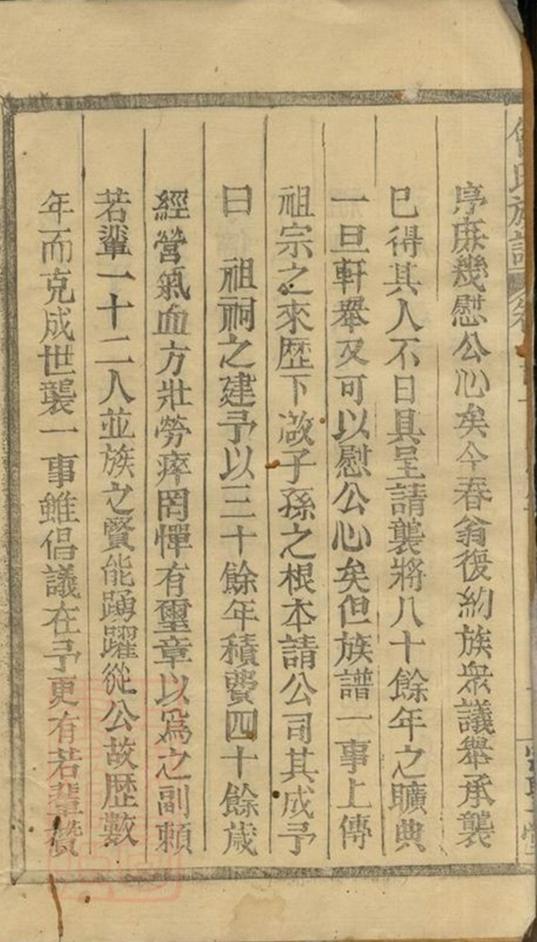 序庶幾慰公心矣今春翁復約族衆議舉承襲
已得其人不日具呈請襲將八十餘年之曠典
一旦軒舉又可以慰公心矣但族譜一事上傳
祖宗之來歷下啟子孫之根本請公司其成予
曰　祖祠之建予以三十餘年積費四十餘歲
經營氣血方壯勞瘁罔憚有璽章以爲之副賴
若輩一十二人並族之賢能踴躍從公故歷數
年而克成世襲一事雖倡議在予更有若輩贊